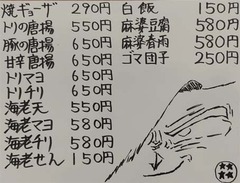 焼ギョーザ 290円
トリの唐揚 550円
豚の唐揚 650円
甘辛唐揚 650円
トリマヨ 650円
トリチリ 650円
海老天 550円
海老マヨ 580円
海老チリ 580円
海老せん 150円
白飯 150円
麻婆豆腐 580円
麻婆春雨 580円
ゴマ団子 250円